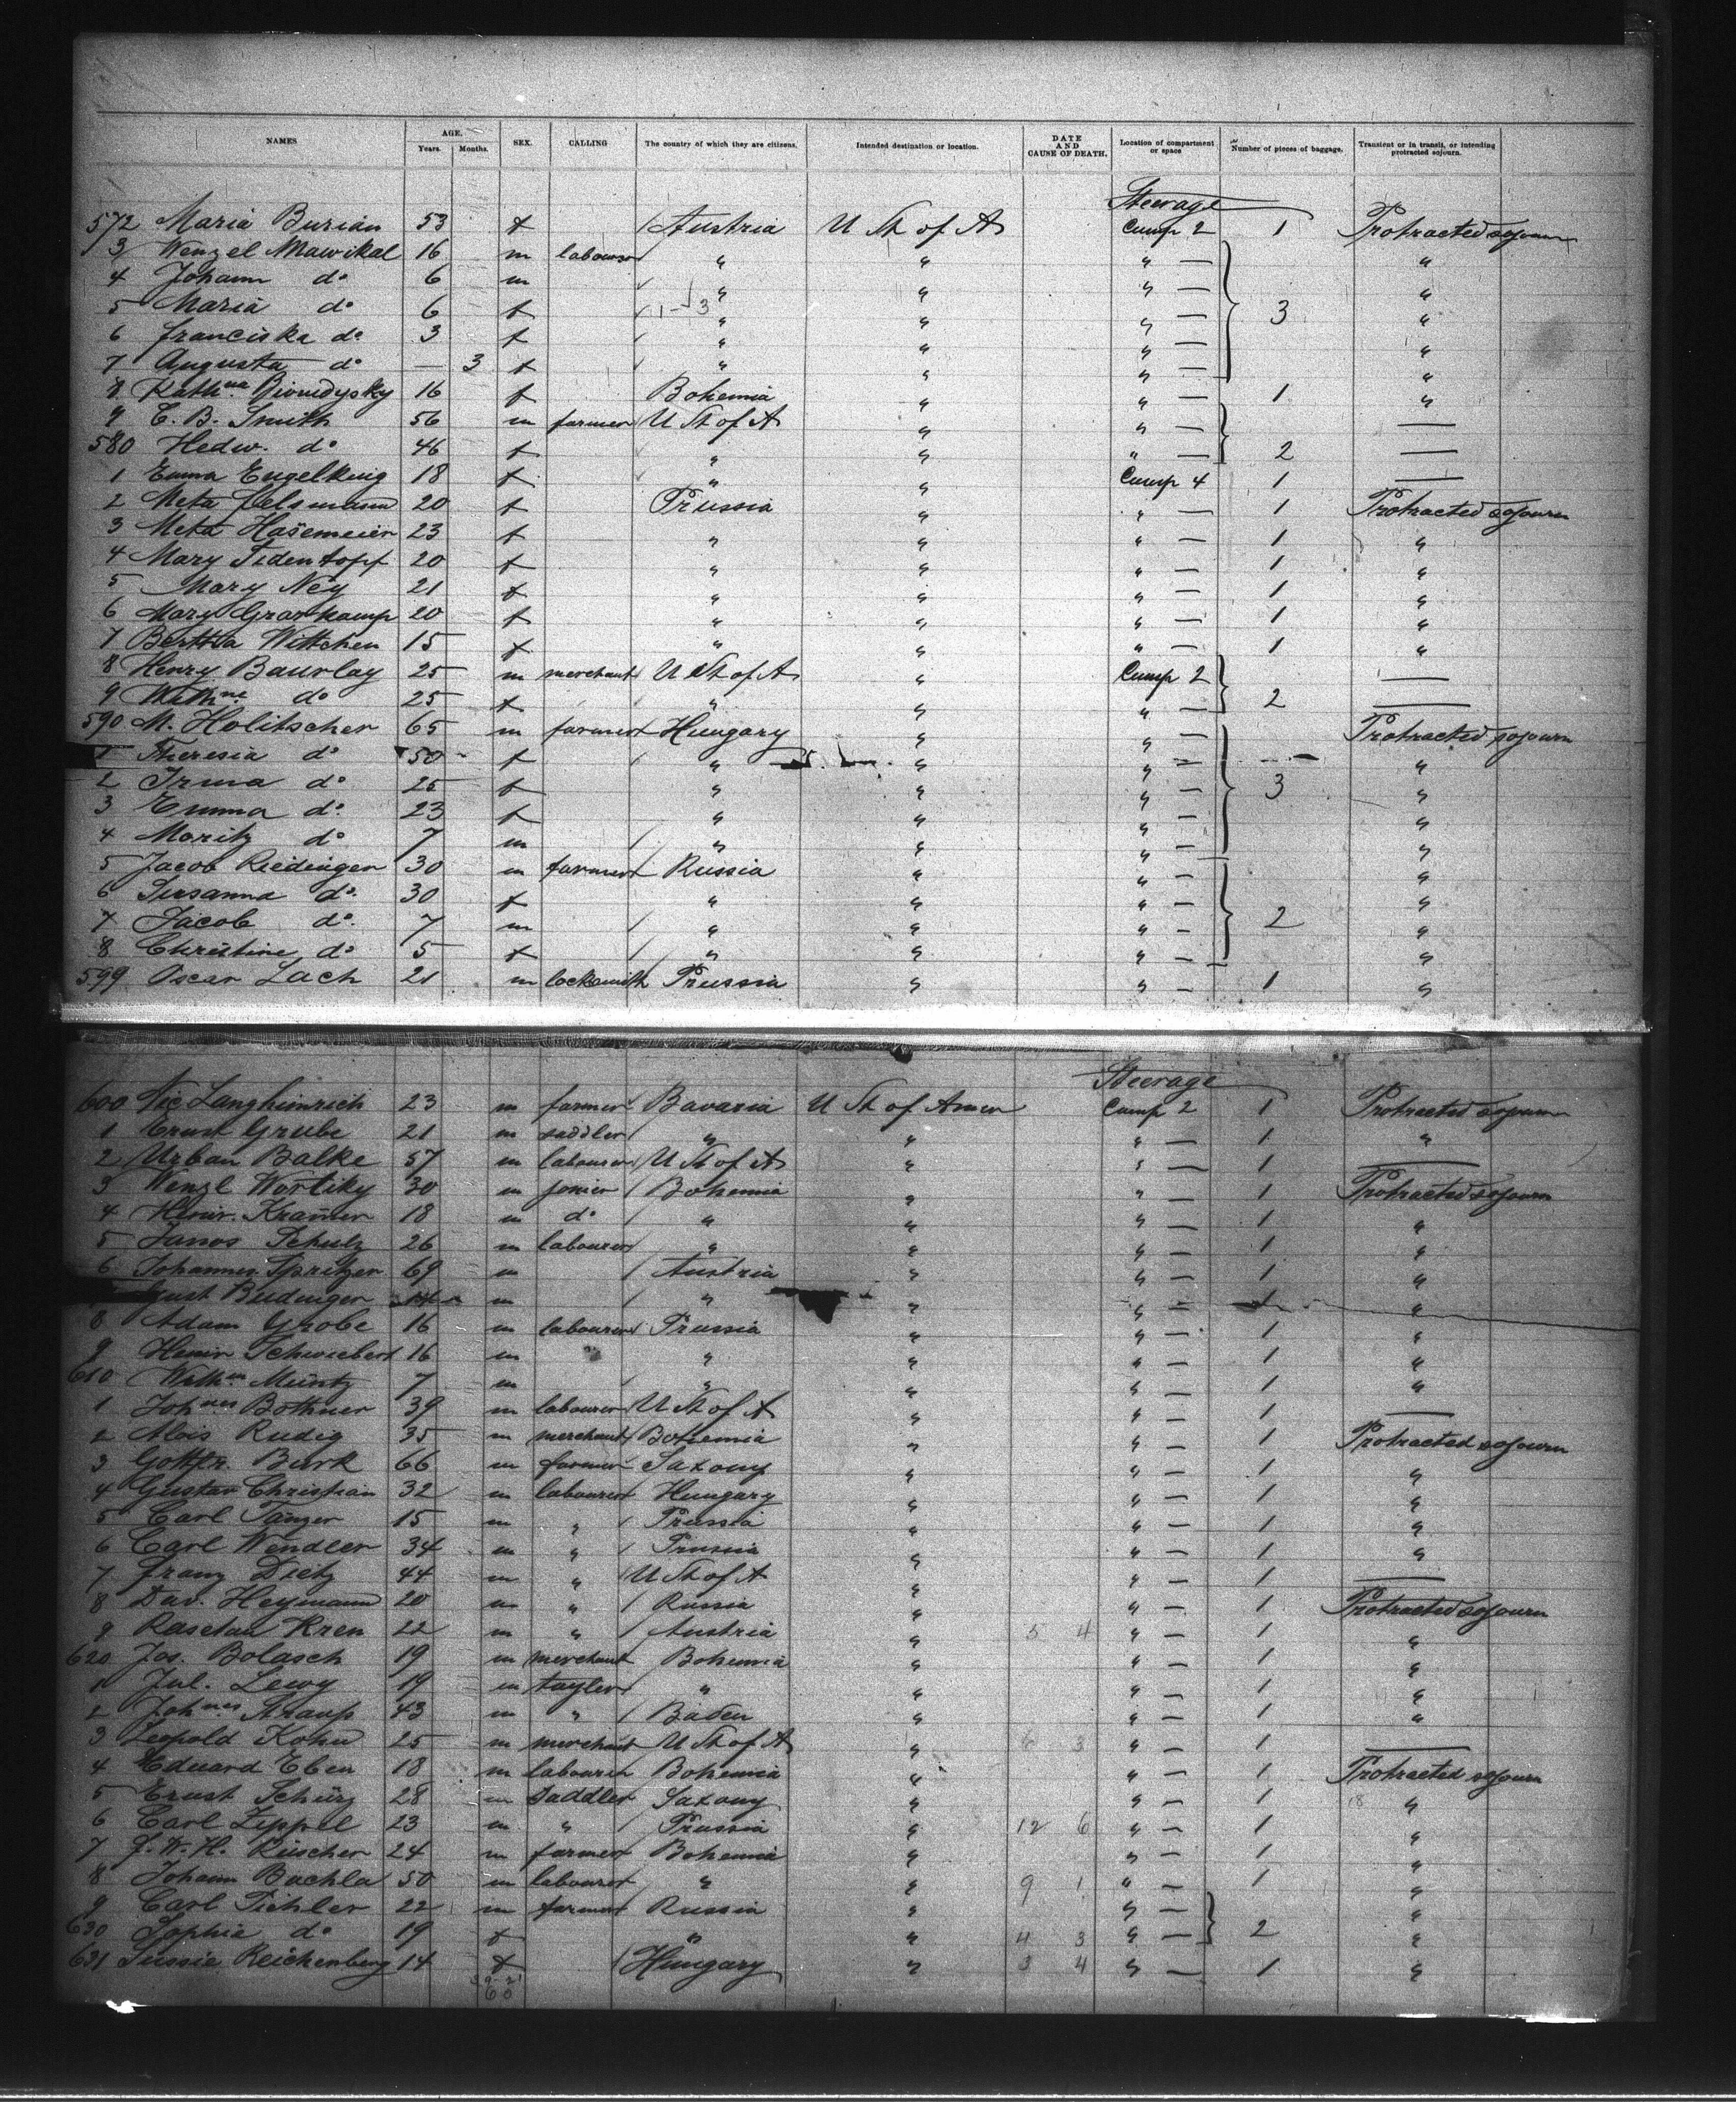 NAMES AGE. Years. Months. SEX. CALLING The country of which they are citizens. Intended destination or location. DATE AND CAUSE OF DEATH. Location of compartment or space Number of pieces of baggage. Transient or in transit, or intending protracted sojourn.
Steerage
572 Maria Burian 53 f Austria U St of A Comp 2 1 Protracted sojourn
3 Wenzel Mawikal 16 m labourer " " " — "
4 Johann do 6 m " " " — "
5 Maria do 6 f " " " — 3 "
6 Franciska do 3 f " " " — "
7 Augusta do — 3 f " " " — "
8 Kathna 16 f Bohemia " " — 1 "
9 C. B. Smith 56 m farmer U St of A " " — —
580 Hedw. do 46 f " " " — 2 —
1 Emma Engelking 18 f " " Comp 4 1 —
2 Meta 20 f Prussia " " — 1 Protracted sojourn
3 Meta Hasemeier 23 f " " " — 1 "
4 Mary Tidentopf 20 f " " " — 1 "
5 Mary Ney 21 f " " " — 1 "
6 Mary Graskamp 20 f " " " — 1 "
7 Bertha Wittchen 15 f " " " — 1 "
8 Henry Baurlay 25 m merchant U St of A " Comp 2 —
9 do 25 f " " " — 2 —
590 M. Holitscher 65 m farmer Hungary " " — Protracted sojourn
1 Theresia do 50 f " " " — "
2 Irma do 25 f " " " — 3 "
3 Emma do 23 f " " " — "
4 Moritz do 7 m " " " — "
5 Jacob Riedinger 30 m farmer Russia " " — "
6 Susanna do 30 f " " " — "
7 Jacob do 7 m " " " — 2 "
8 Christine do 5 f " " " — "
599 Oscar Lach 21 m locksmith Prussia " " — 1 "
Steerage
600 Nic Langheinrich 23 m farmer Bavaria U St of Amer Comp 2 1 Protracted sojourn
1 Ernst Grube 21 m saddler " " " — 1 "
2 Urban Balke 57 m labourer U St of A " " — 1 —
3 Wenzl Wortiky 30 m jonier Bohemia " " — 1 Protracted sojourn
4 Heinr. Kramer 18 m do " " " — 1 "
5 Janos Schulz 26 m labourer " " " — 1 "
6 Johannes Spritzer 69 m Austria " " — 1 "
Gust Budinger m " " " — 1 "
8 Adam Grobe 16 m labourer Prussia " " — 1 "
9 Heinr Schwiebert 16 m " " " — 1 "
610 Wilhm Müntz 7 m " " " — 1 "
1 Johnes Bothner 39 m labourer U St of A " " — 1 —
2 Alois Rudig 35 m merchant Bohemia " " — 1 Protracted sojourn
3 Gottfr. Burk 66 m farmer Saxony " " — 1 "
4 Gustav Christian 32 m labourer Hungary " " — 1 "
5 Carl Tanzer 15 m " Prussia " " — 1 "
6 Carl Wendler 34 m " Prussia " " — 1 "
7 Franz Dietz 44 m " U St of A " " — 1 —
8 Dav. Heymann 20 m " Russia " " — 1 Protracted sojourn
9 Rasetan Kren 22 m " Austria " 5 4 " — 1 "
620 Jos. Bolasch 19 m merchant Bohemia " " — 1 "
1 Jul. Lewy 19 m tayler " " " — 1 "
2 Johnes Straup 43 m " Baden " " — 1 "
3 Leopold Kohn 25 m merchant U St of A " 6 3 " — 1 —
4 Eduard Eben 18 m labourer Bohemia " " — 1 Protracted sojourn
5 Ernst Schürz 28 m Saddler Saxony " " — 1 18 "
6 Carl Zeppel 23 m " Prussia " 12 6 " — 1 "
7 F. W. H. Rüscher 24 m farmer Bohemia " " — 1 "
8 Johann Buchla 50 m labourer " " 9 1 " — 1 "
9 Carl Tichler 22 m farmer Russia " " — "
630 Sophia do 19 f " " 4 3 " — 2 "
631 Sussie Reichenberg 14 f Hungary " 3 4 " — 1 "